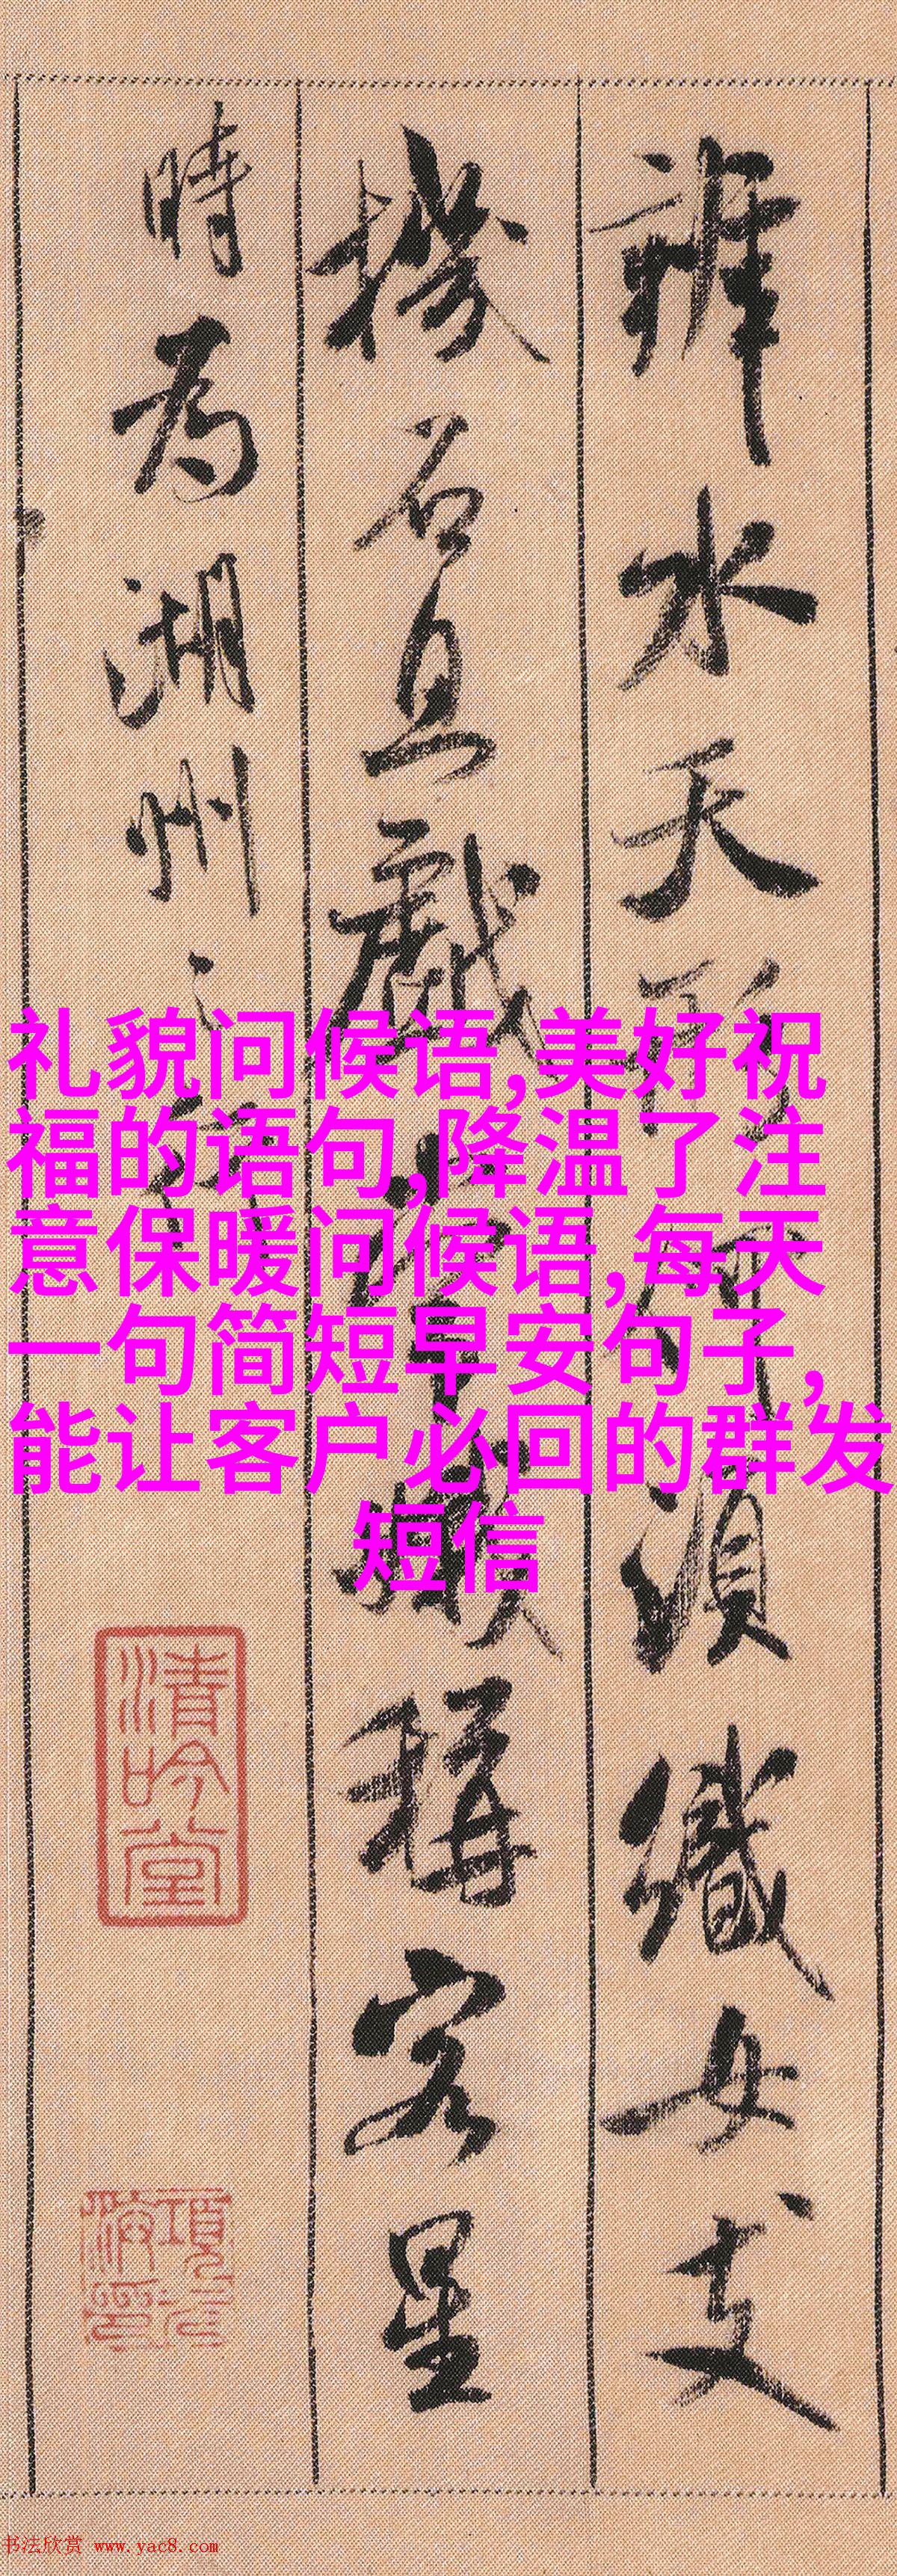 辨水天形何須織女支
機石且戲常娥稱客星
時為湖州之行
礼貌问候语,美好祝
福的语句,降温了注
意保暖问候语,每天
一句简短早安句子,
能让客户必回的群发
短信
清吟堂
书法欣赏 www.yac8.com